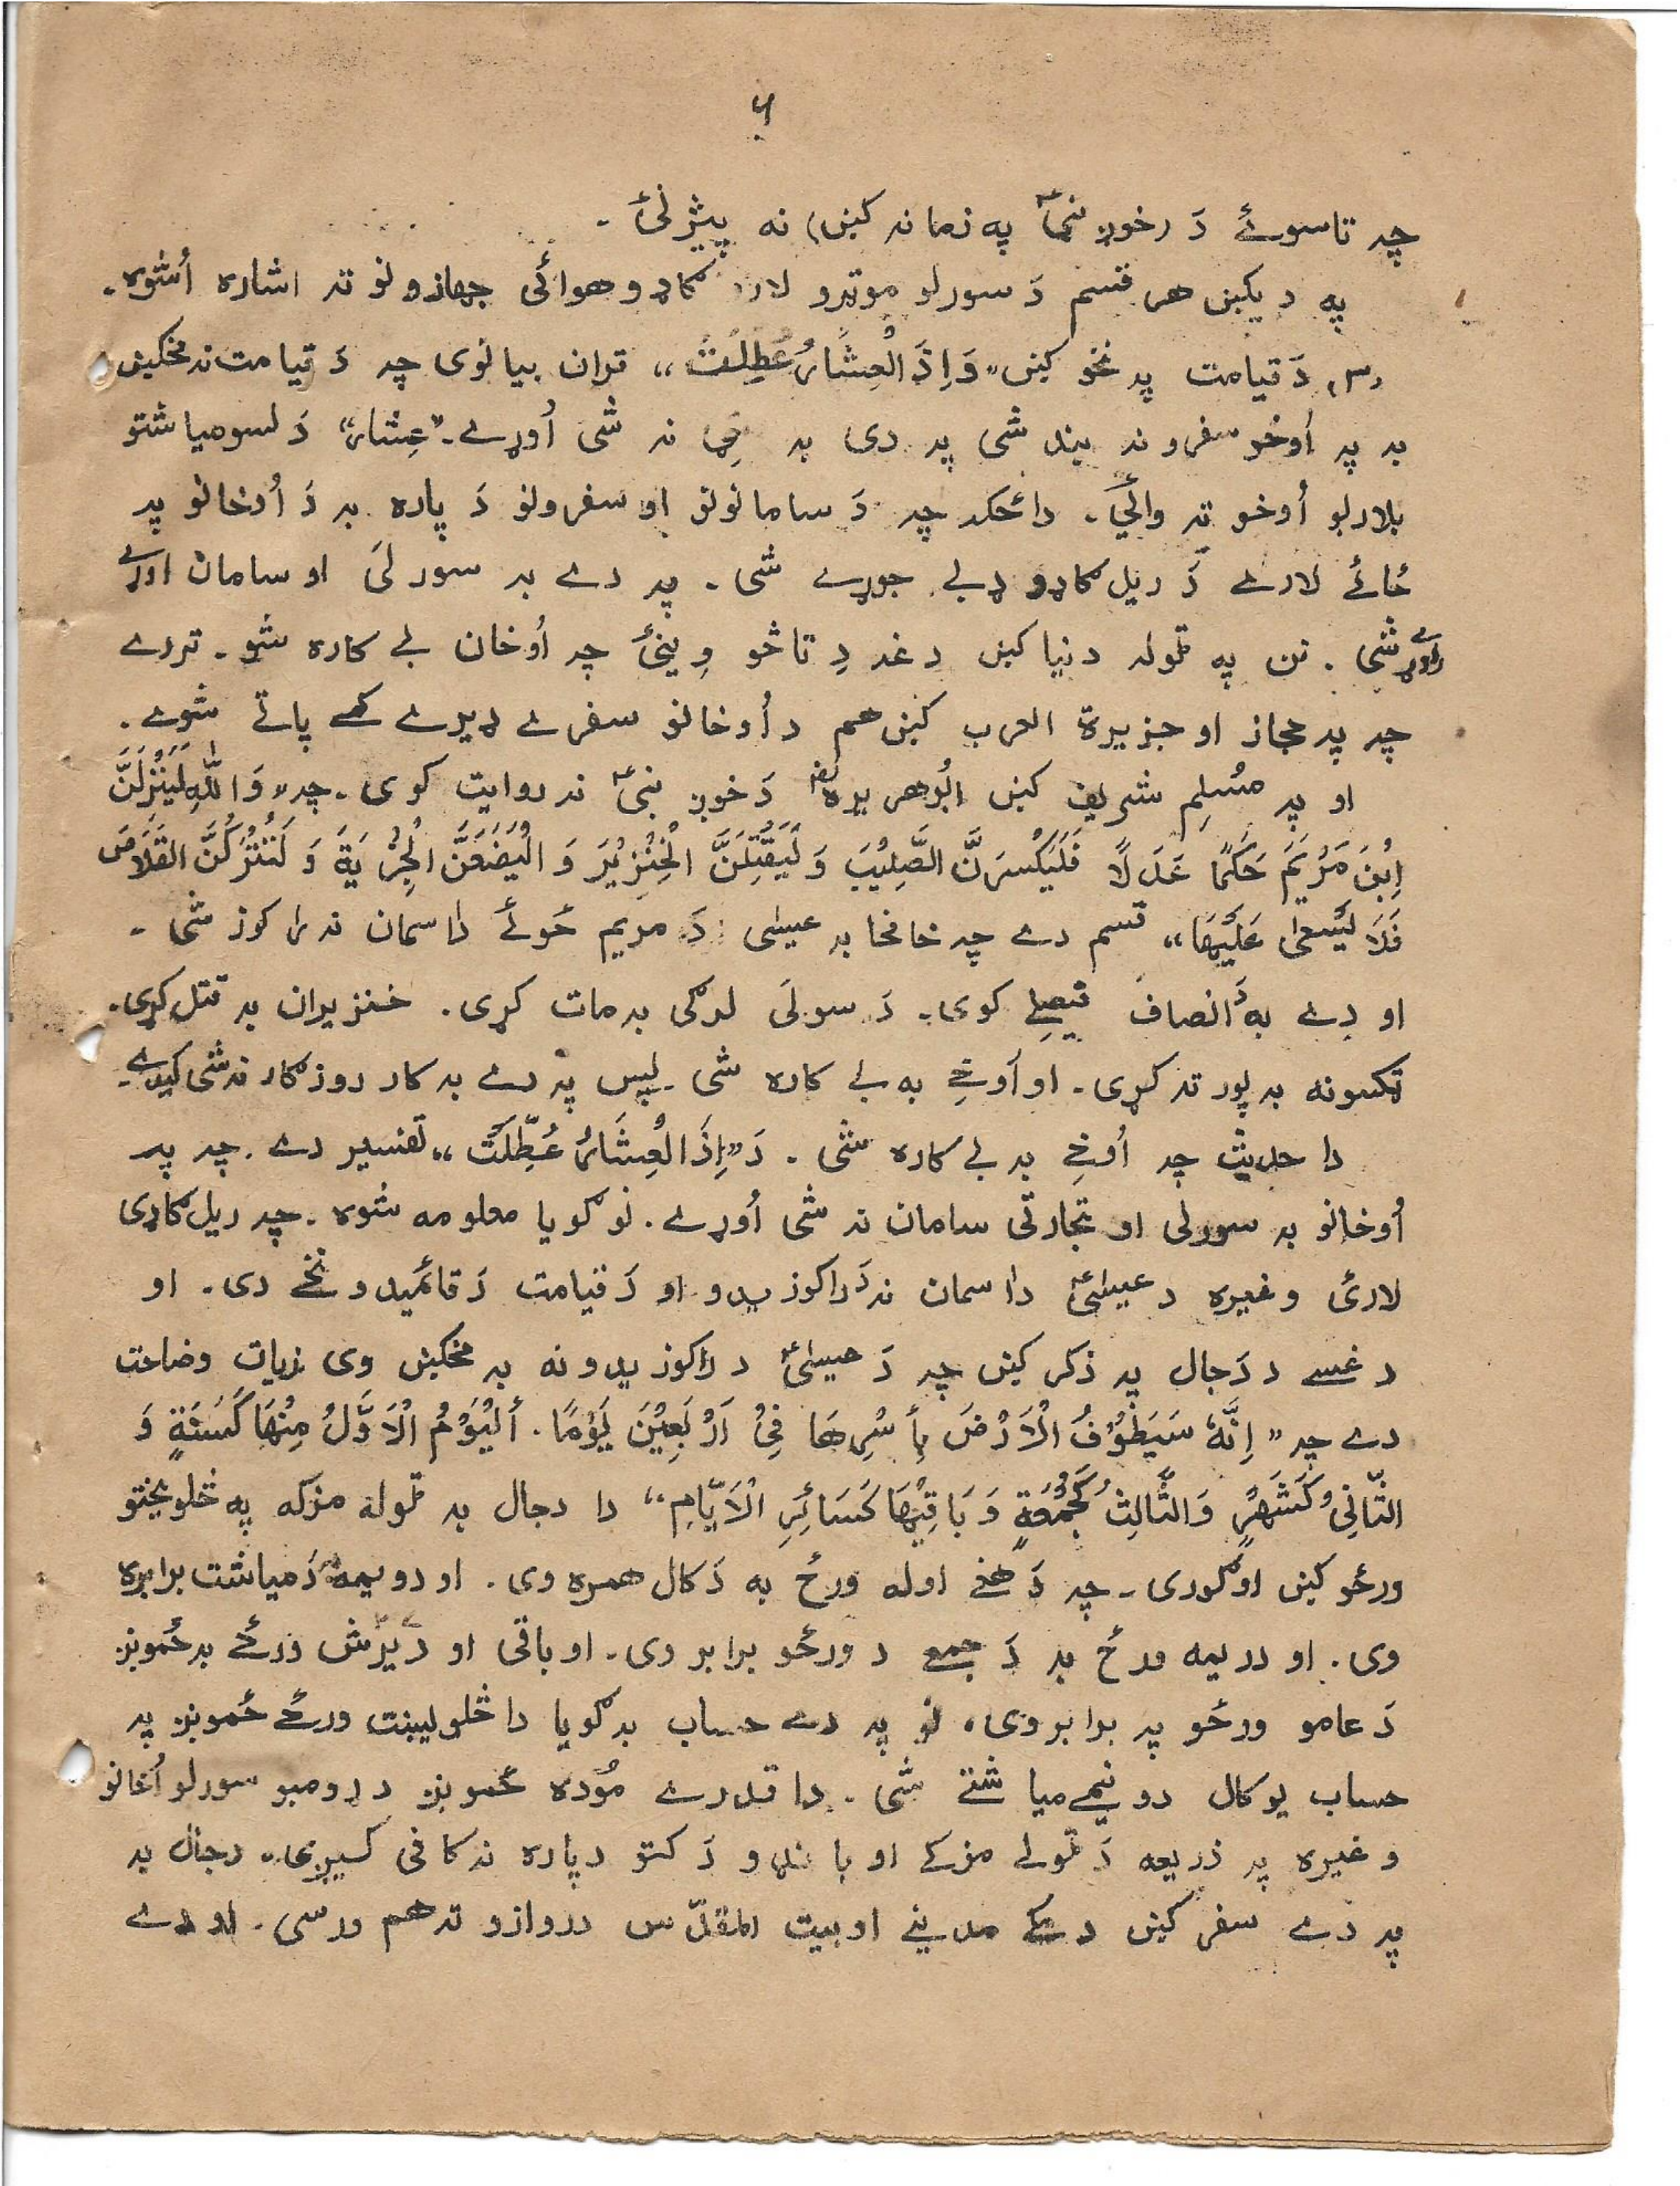 ۶
چہ تاسوئے دَ (خوږ نبیؐ په زمانہ کښ) نہ پیژنئ -
په دیکښ هر قسم دَ سورلو موټرو لارو ګاډو هوائی جهازونو تہ اشارہ اُشوه -
(۳) دَ قیامت پہ نخو کښ "وَاِذَ الْعِشَارُ عُطِلَتْ" قران بیانوی چہ دَ قیامت نہ مخکښ
بہ پہ اُوخو سفرونہ بند شی پہ دی بہ نہ شی اُوړے - "عِشار" دَ لسو میاشتو
بلاربو اُوخو تہ وائی - دا ځکہ چہ دَ سامانونو او سفرونو دَ پارہ بہ دَ اُوخانو پہ
ځائے لارے دَ ریل ګاډو ډبے جوړے شی - پہ دے بہ سورلی او سامان اوړے
راوړے شی - نن په ټولہ دنیا کښ دغہ دِ تاسو وینئ چہ اُوخان بے کارہ شو - تردے
چہ پہ حجاز او جزیرة العرب کښ هم د اُوخانو سفرے ډیرے کمے پاتے شوے -
او پہ مُسلِم شریف کښ ابُوهریرهؓ دَ خوږ نبیؐ نہ روایت کوی - چہ "وَاللّٰهِ لَيَنْزِلَنَّ
اِبْنَ مَرْيَمَ حَكَمًا عَدَلًا فَلَيَكْسِرَنَّ الصَّلِيْبَ وَ لَيَقْتِلَنَّ الْخِنْزِيْرَ وَ الْيَضَعَنَّ الْجِزْيَةَ وَ لَتُتْرَكُنَّ القَلَاصَ
فَلَا يَسْعىٰ عَلَيْهَا" قسم دے چہ خامخا بہ عیسٰی دَ مریم ځوئے دا سمان نہ را کوز شی -
او دے بہ دَ انصاف فیصلے کوی - دَ سولَی لرګی بہ مات کړی . خنزیران بہ قتل کړی -
ټکسونه بہ پورتہ کړی - او اُوخے به بے کارہ شی - پس پہ دے بہ کار روزګار نہ شی کیدے -
دا حدیث چہ اُوخے بہ بے کارہ شی . دَ "اِذَ الْعِشَارُ عُطِّلَتْ" تفسیر دے . چہ پہ
اُوخانو بہ سورلی او تجارتی سامان نہ شی اُوړے . نو ګویا معلومہ شوه - چہ ریل ګاډی
لارئ وغیره د عیسٰیؑ دا سمان نہ دَ راکوزیدو او دَ قیامت دَ قائمیدو نخے دی . او
دغسے د دَجال پہ ذکر کښ چہ دَ عیسٰیؑ د راکوزیدو نہ بہ مخکښ وی زیات وضاحت
دے چہ "اِنَّهٗ سَيَطُوْفُ الْاَرْضَ بِأَسْرِهَا فِيْ اَرْبَعِيْنَ يَوْمًا . أَلْيَوْمُ الْاَوَّلُ مِنْهَا كَسَنَةٍ وَ
الثَّانِيْ كَشَهْرٍ وَالثَّالِثُ كَجُمُعَةٍ وَ بَاقِيْهَا كَسَائِرِ الْاَيَّامِ" دا دجال بہ ټوله مزکه په څلویختو
ورځو کښ اوګوری - چہ دَ هغے اوله ورځ به دَ کال همره وی . او دویمه دَ میاشت برابره
وی . او دریمه ورځ بہ دَ جمعے د ورځو برابر وی . او باقی او دیرش ورځے بہ ځموږ
دَ عامو ورځو پہ برابر وی، نو پہ دے حساب بہ ګویا دا څلویښت ورځے ځموږ پہ
حساب یو کال دو نیمے میاشتے شی . دا قدرے مُوده ځموږ د ړومبو سورلو اُخانو
وغیره پہ ذریعه دَ ټولے مزکے او باندو دَ کتو دپاره نہ کافی کیږی، دجال بہ
پہ دے سفر کښ د مکے مدینے او بیت المقدّس دروازو تہ هم ورسی . او دے